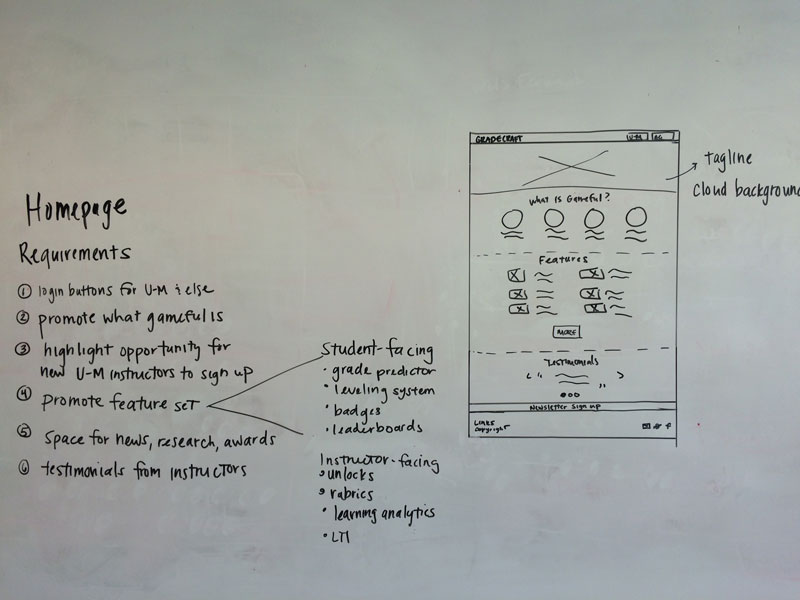 Homepage
Requirements
① login buttons for U-M & else
② promote what gameful is
③ highlight opportunity for
new U-M instructors to sign up
④ promote feature set
⑤ space for news, research, awards
⑥ testimonials from instructors
Student-facing
· grade predictor
· leveling system
· badges
· leaderboards
Instructor-facing
· unlocks
· rubrics
· learning analytics
· LTI
GRADECRAFT
U-M
What is Gameful?
Features
MORE
Testimonials
Newsletter Sign up
Links
Copyright
tagline
cloud background